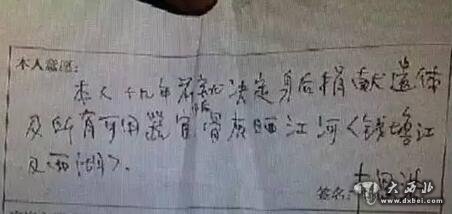 本人意愿:
本人十几年前就决定身后捐献遗体
及所有可用器官骨灰晒江河《钱塘江
及西湖》.
签名:
大西北
www.dxbei.com